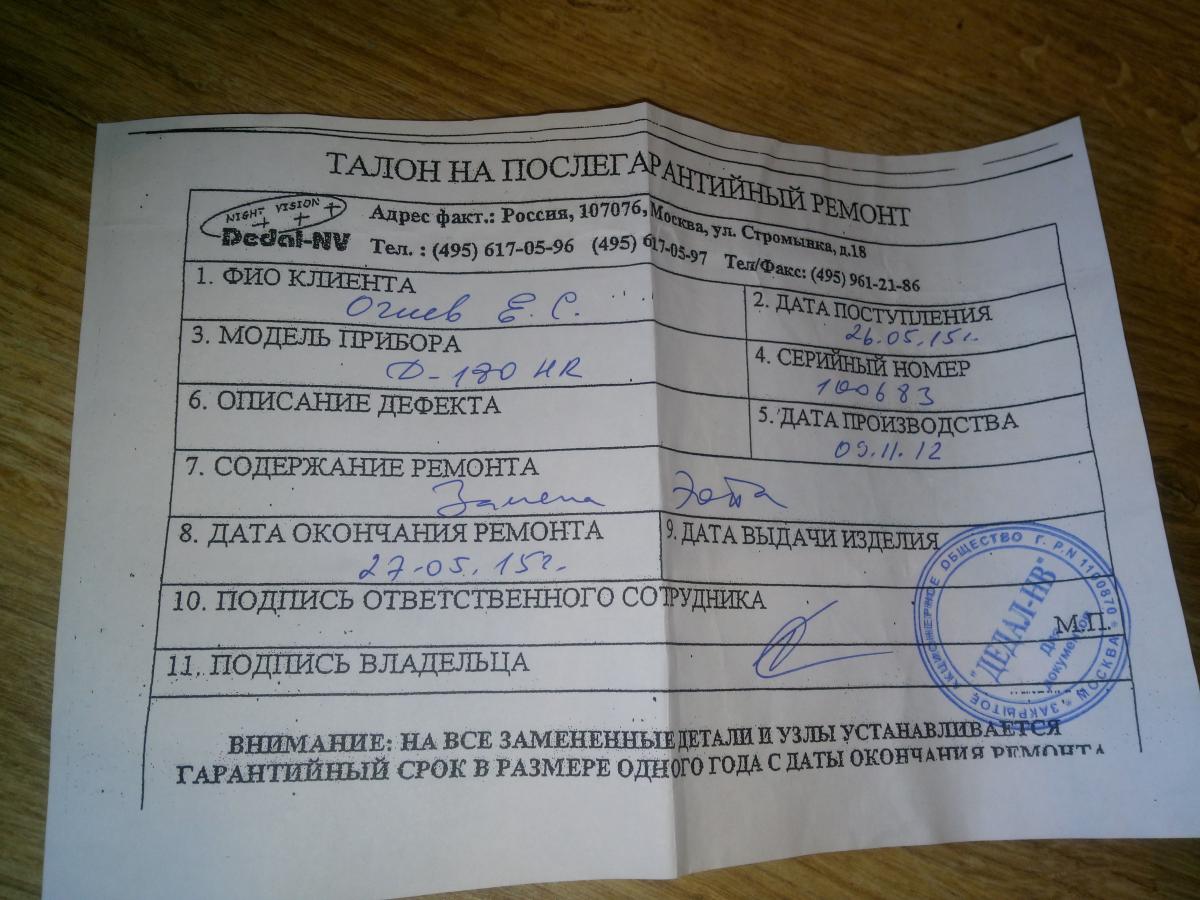 ТАЛОН НА ПОСЛЕГАРАНТИЙНЫЙ РЕМОНТ
NIGHT VISION
Dedal-NV
Адрес факт.: Россия, 107076, Москва, ул. Стромынка, д.18
Тел. : (495) 617-05-96 (495) 617-05-97 Тел/Факс: (495) 961-21-86
1. ФИО КЛИЕНТА
Огнев Е. С.
2. ДАТА ПОСТУПЛЕНИЯ
26.05.15г.
3. МОДЕЛЬ ПРИБОРА
D-180 HR
4. СЕРИЙНЫЙ НОМЕР
100683
6. ОПИСАНИЕ ДЕФЕКТА
5. ДАТА ПРОИЗВОДСТВА
09.11.12
7. СОДЕРЖАНИЕ РЕМОНТА
Замена ЭОПа
8. ДАТА ОКОНЧАНИЯ РЕМОНТА
27.05.15г.
9. ДАТА ВЫДАЧИ ИЗДЕЛИЯ
10. ПОДПИСЬ ОТВЕТСТВЕННОГО СОТРУДНИКА
М.П.
11. ПОДПИСЬ ВЛАДЕЛЬЦА
ЗАКРЫТОЕ АКЦИОНЕРНОЕ ОБЩЕСТВО Г. Р.N 1100870 * МОСКВА *
"ДЕДАЛ-НВ"
Для документов
ВНИМАНИЕ: НА ВСЕ ЗАМЕНЕННЫЕ ДЕТАЛИ И УЗЛЫ УСТАНАВЛИВАЕТСЯ
ГАРАНТИЙНЫЙ СРОК В РАЗМЕРЕ ОДНОГО ГОДА С ДАТЫ ОКОНЧАНИЯ РЕМОНТА